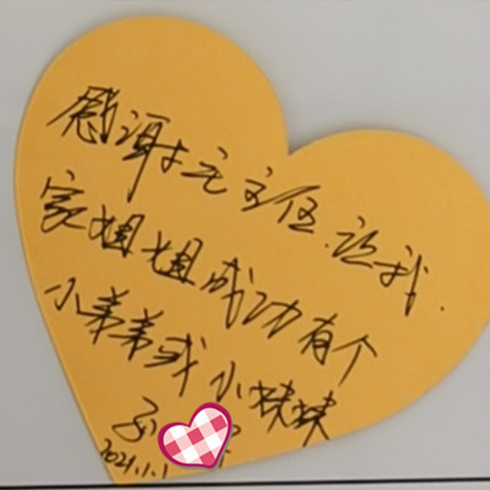 感谢元主任.让我.
家姐姐成功有个
小弟弟或小妹妹
2021.1.1